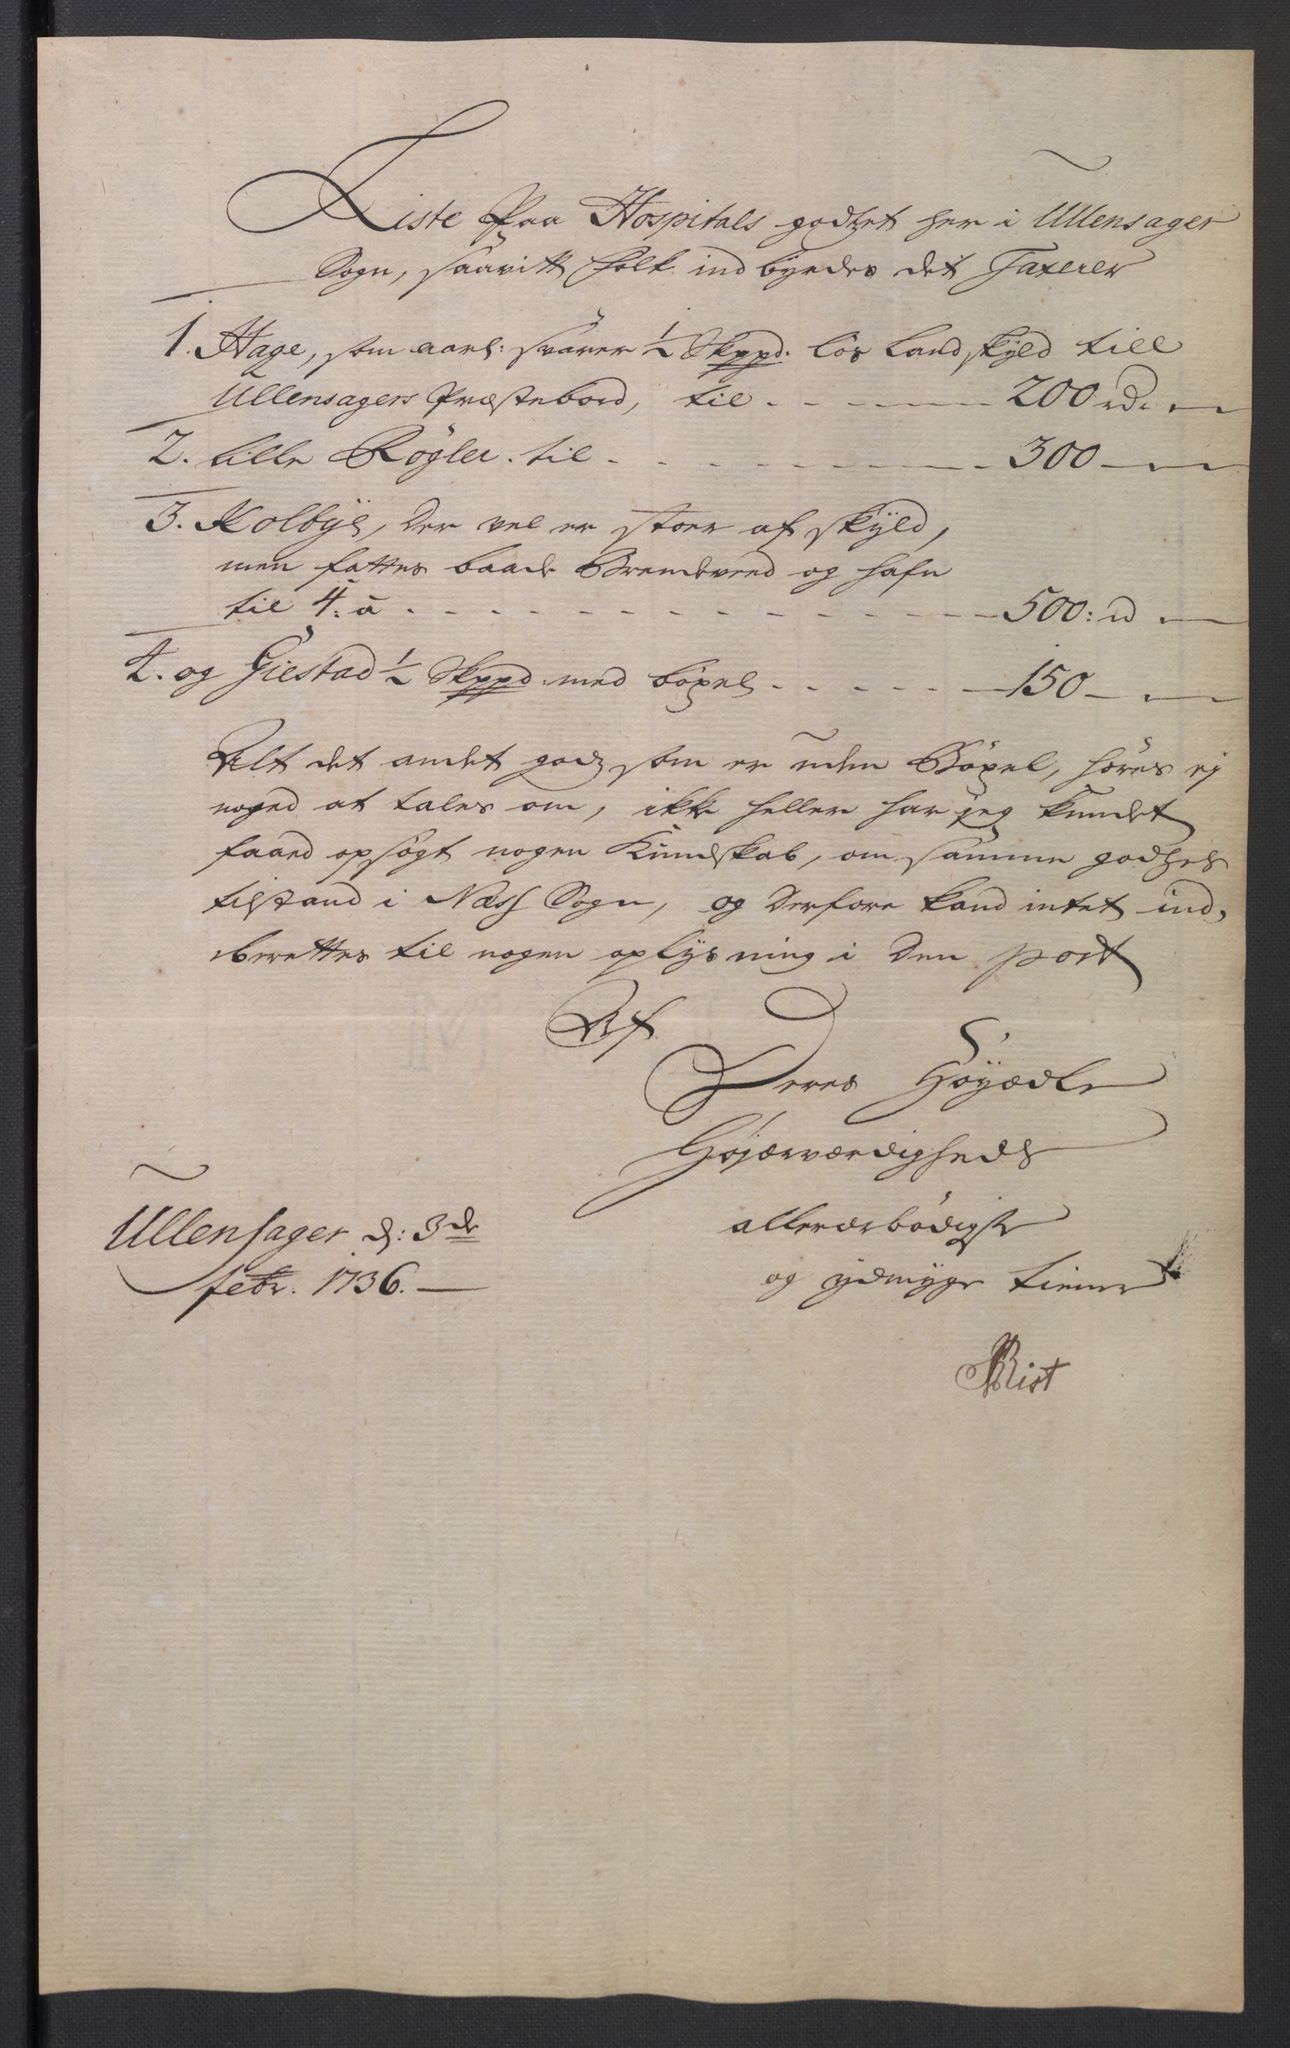 Liste Paa Hospitals godtzet her i Ullensager
Sogn, saavitt folk indbyrdes det Taxerer
1. Hage, som aarl: svarer 1/2 Skppd. løs Landskyld till
Ullensagers Præstebord, til - - - - 200 rd. -
2. Lille Røgler. til - - - - 300 -
3. Kolbye, der vel er stoer af skyld,
men fattes baade Brendeveed og hafn
til 4: à - - - - 500: rd -
4. og Giestad 1/2 Skppd med bøxel - - - - 150 -
Alt det andet godz som er uden Bøxel, høres ej
noged at tales om, ikke heller har jeg kundet
faaed opsøgt nogen Kundskab, om samme godtzes
tilstand i Næss Sogn, og derfore kand intet ind-
berettes til nogen oplysning i den post
Af
Deres Høyædle
Højærværdigheds
allerærbødigste
og ydmyge tiener
Rist
Ullensager d: 3de
febr. 1736.